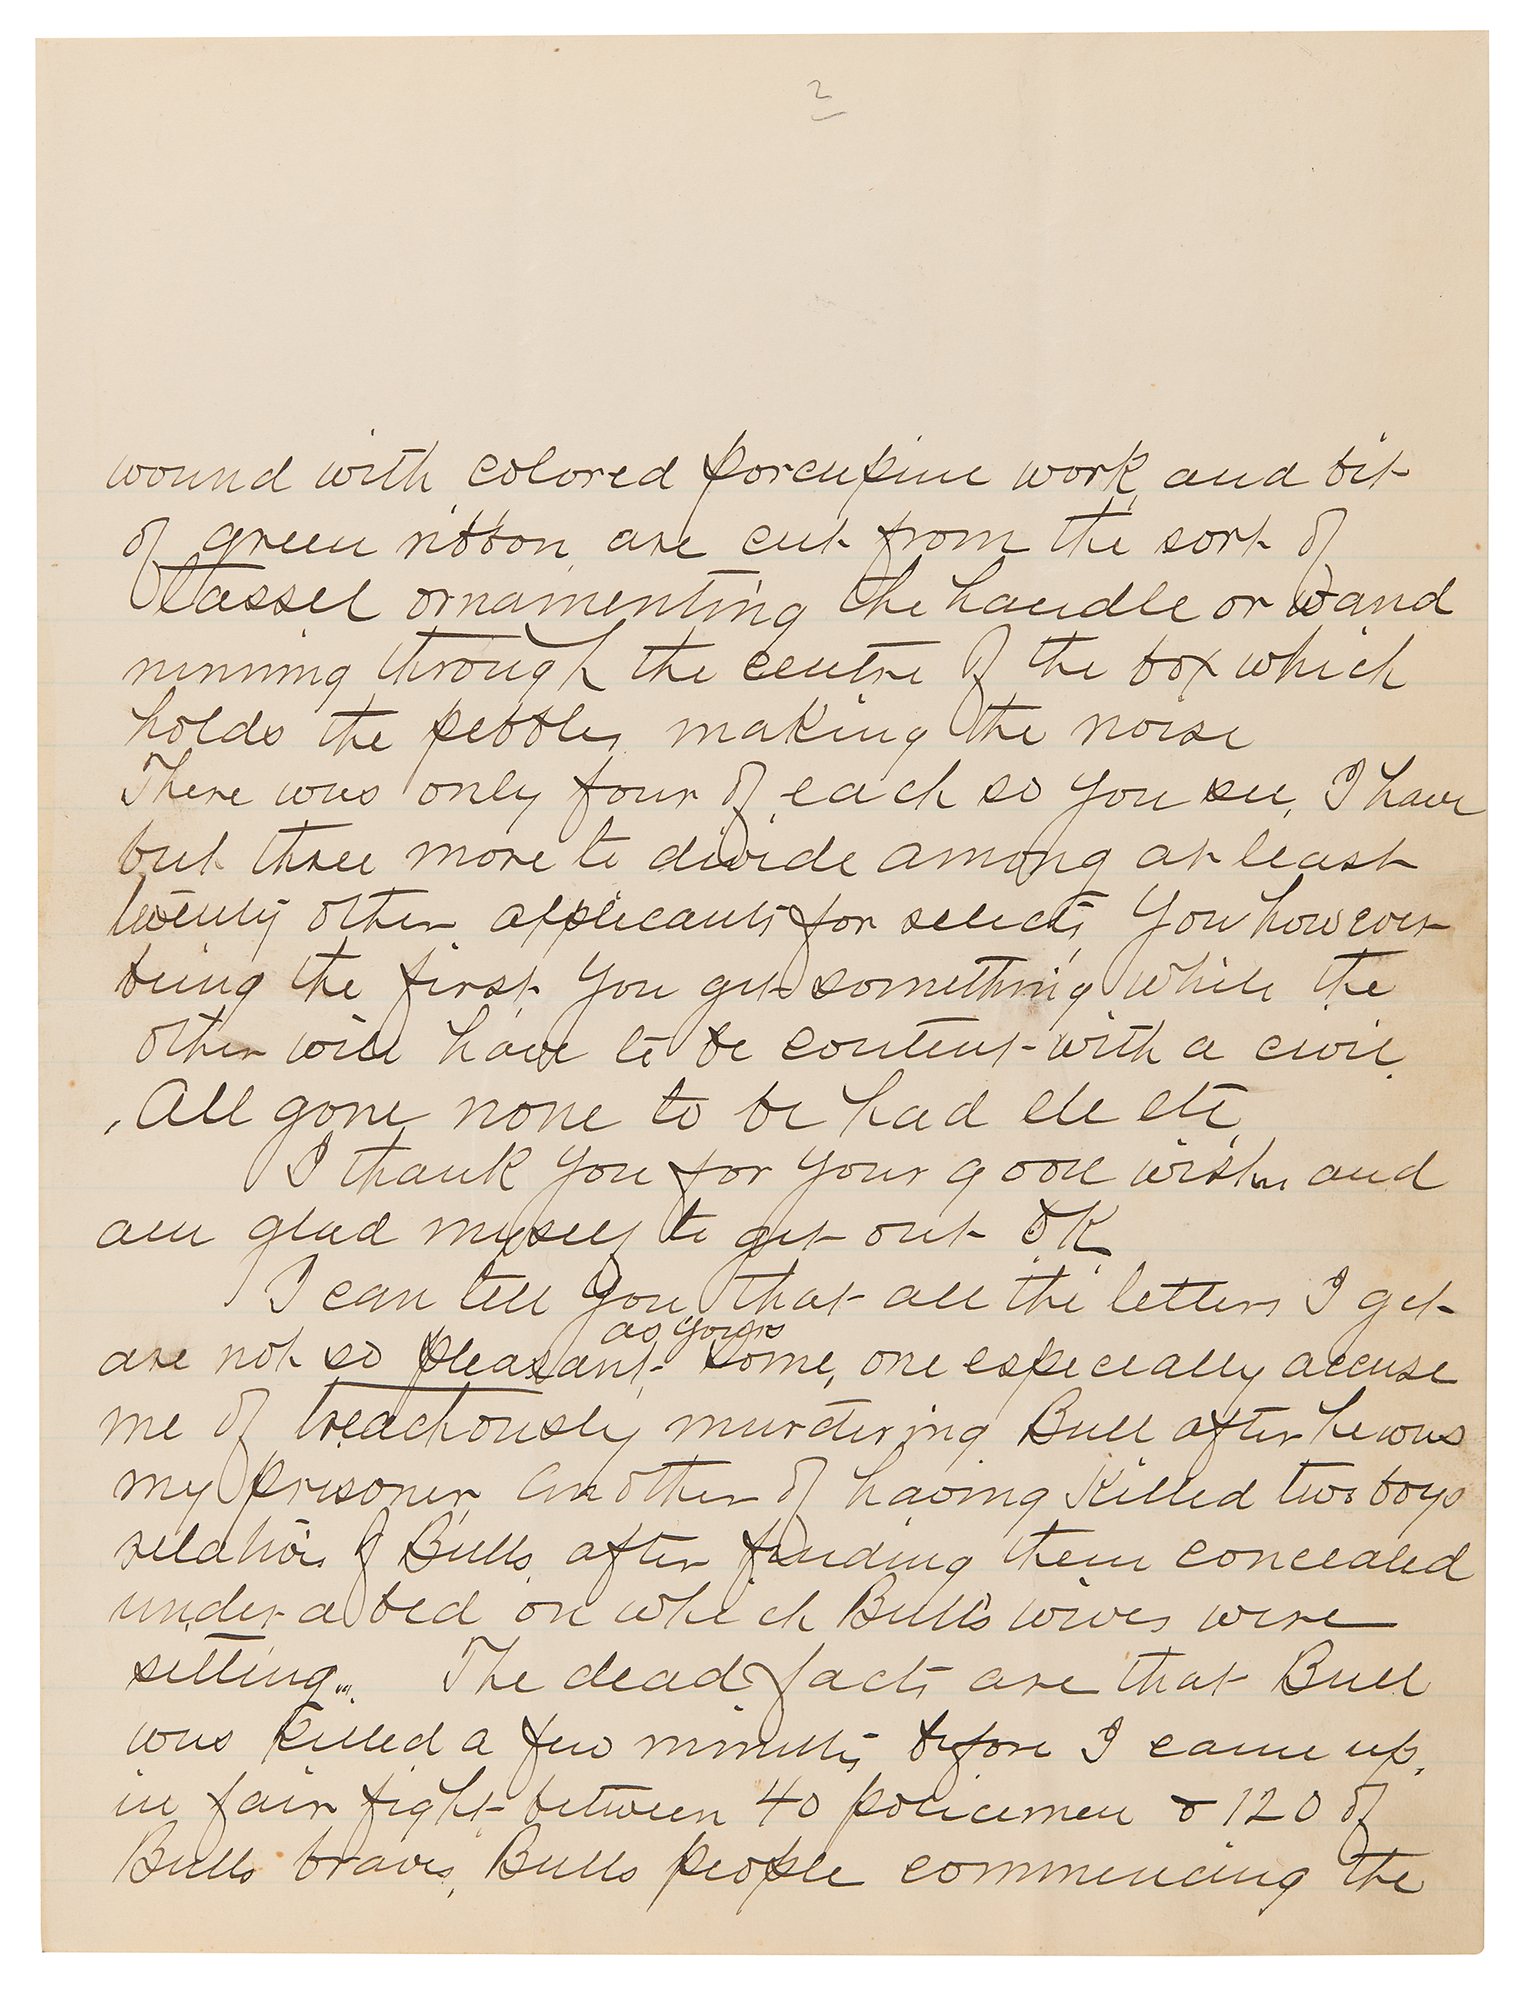 2
wound with colored porcupine work and bit
of green ribbon are cut from the sort of
tassel ornamenting the handle or wand
running through the centre of the box which
holds the pebbles making the noise
There was only four of each so you see, I have
but three more to divide among at least
twenty other applicants for selects, You however
being the first you get something while the
other will have to be content with a civil
, All gone none to be had etc etc,
I thank you for your good wishes and
am glad myself to get out OK
I can tell you, that all the letters I get
as yours
are not so pleasant, some, one especially accuse
me of treachously murdering Bull after he was
my prisoner, another of having killed two boys
relations of Bulls, after finding them concealed
under a bed on which Bull's wives were
sitting. The dead facts are that Bull
was killed a few minutes before I came up,
in fair fight between 40 policemen & 120 of
Bulls braves, Bulls people commencing the